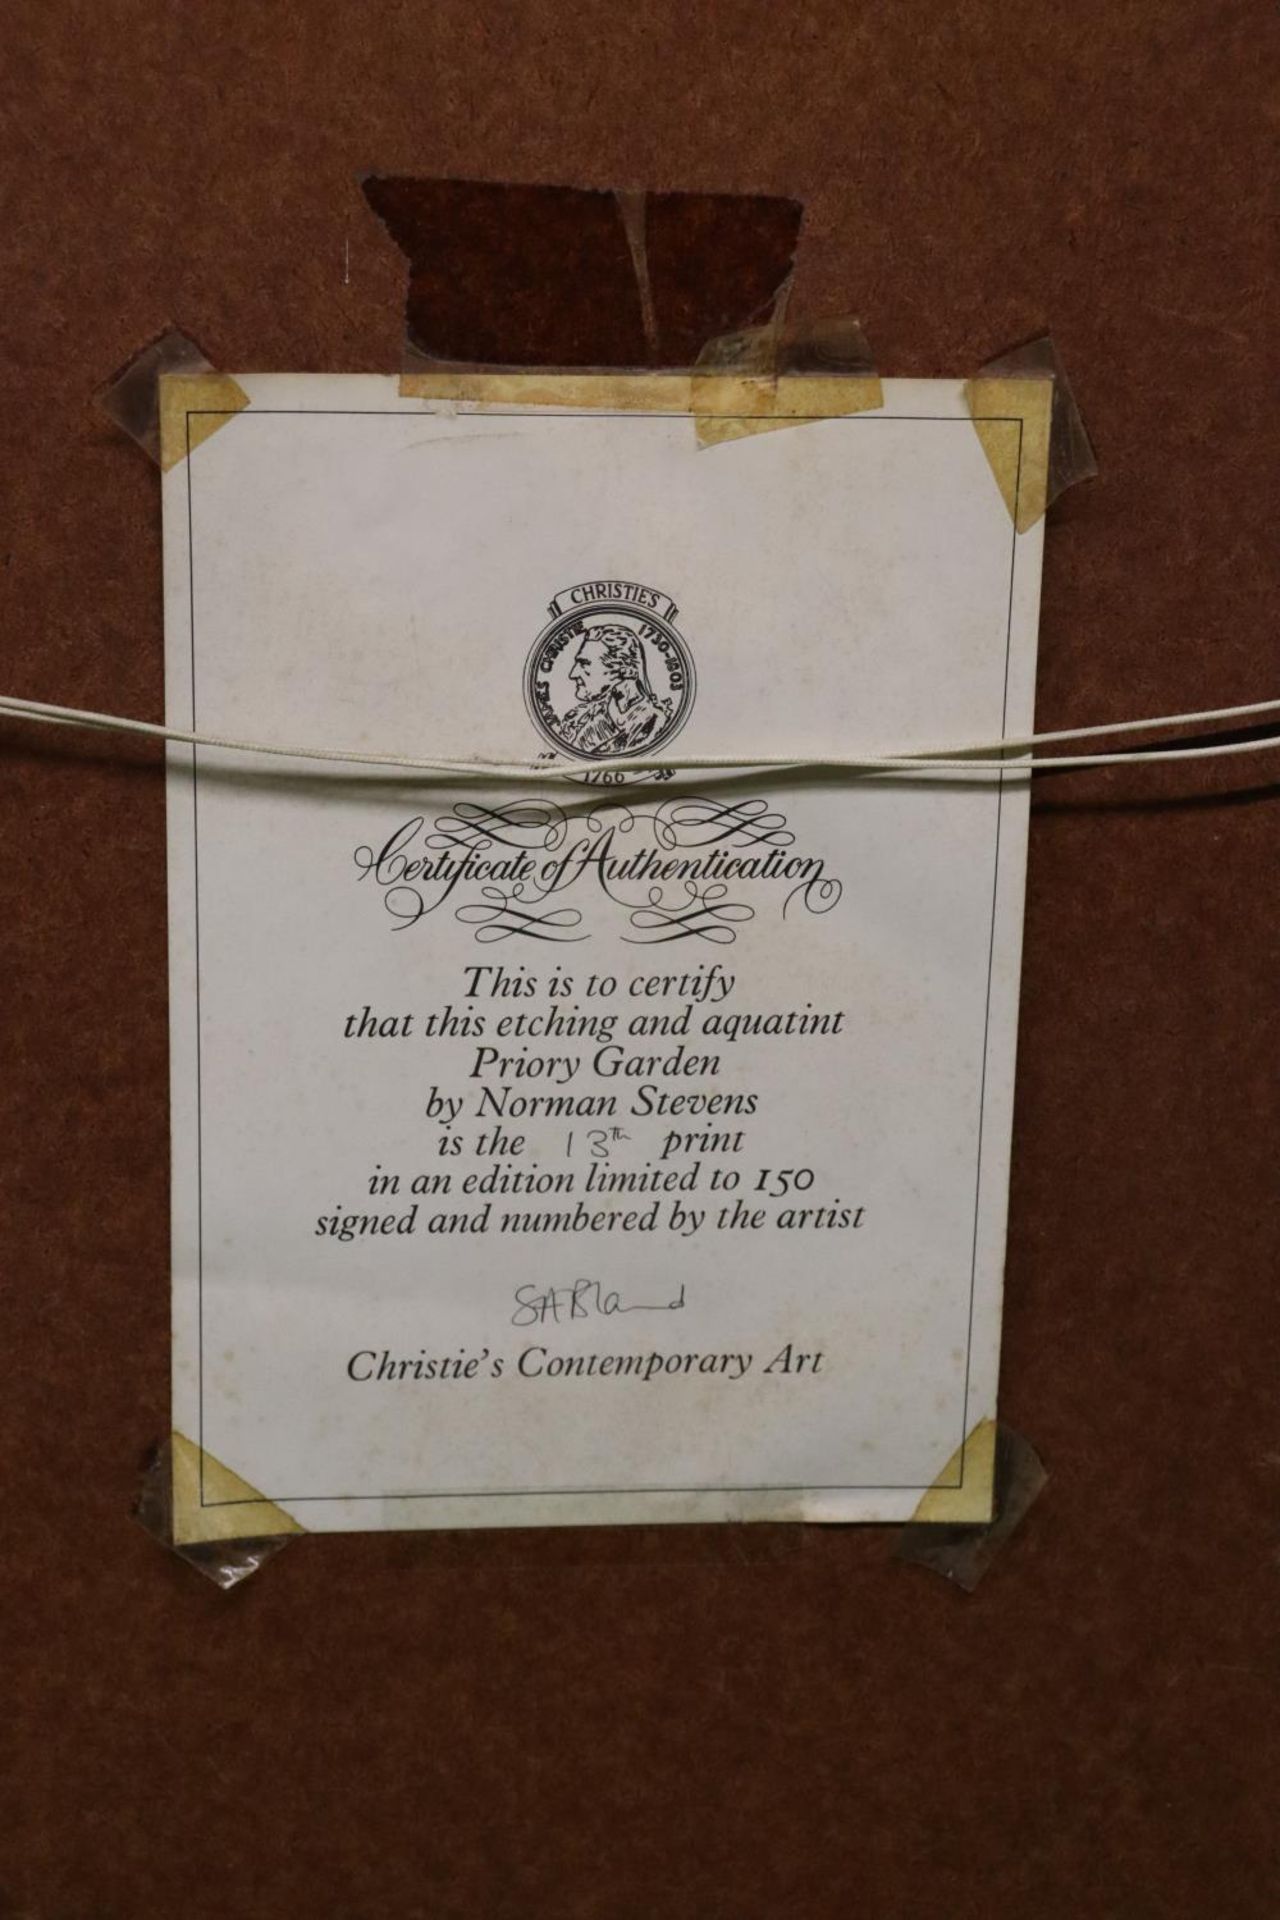 CHRISTIE'S
JAMES CHRISTIE 1730-1803
1766
Certificate of Authentication
This is to certify
that this etching and aquatint
Priory Garden
by Norman Stevens
is the 13th print
in an edition limited to 150
signed and numbered by the artist
SABland
Christie's Contemporary Art